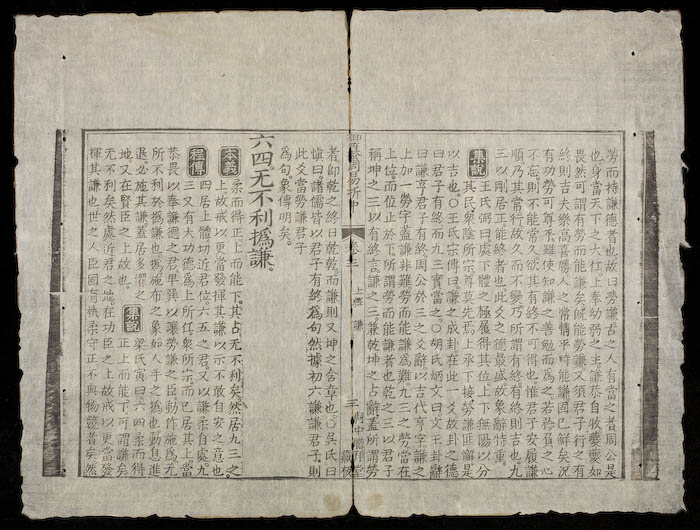 勞而持謙德者也故曰勞謙古之人有當之者周公是
也身當天下之大任上奉幼弱之主謙恭自牧夔夔如
畏然可謂有勞而能謙矣旣能勞謙又須君子行之有
終則吉夫樂高喜勝人之常情平時能謙固已鮮矣況
有功勞可尊乎雖使知謙之善勉而爲之若矜負之心
不忘則不能常久欲其有終不可得也惟君子安履謙
順乃其常行故久而不變乃所謂有終有終則吉也九
三以剛居正能終者也此爻之德最盛故象辭特重
集說 王氏弼曰處下體之極履得其位上下无陽以分
其民衆陰所宗尊莫先焉上承下接勞謙匪懈是
以吉也○王氏宗傳曰謙之成卦在此一爻故卦之德
曰君子有終而九三實當之○胡氏炳文曰文王卦辭
曰謙亨君子有終周公於三之爻辭以吉代亨字謙之
上加一勞字蓋謙非難勞而能謙爲難九三之勞當在
上位而位止於下所謂勞而能謙者也乾之三以君子
稱坤之三以有終言謙之三兼乾坤之占辭蓋所謂勞
御纂周易折中 卷二 上經 謙 三
者卽乾之終日乾乾而謙則又坤之含章也○吳氏曰
愼曰諸儒皆以君子有終爲句然據初六謙謙君子則
此爻當勞謙君子
爲句象傳明矣。
六四无不利撝謙。
本義 柔而得正上而能下其占无不利矣然居九三之
上故戒以更當發揮其謙以示不敢自安之意也
程傳 四居上體切近君位六五之君又以謙柔自處九
三又有大功德爲上所任衆所宗而已居其上當
恭畏以奉謙德之君卑巽以讓勞謙之臣動作施爲无
所不利於撝謙也撝施布之象如人手之撝也動息進
退必施其謙蓋居多懼之
地又在賢臣之上故也
集說 梁氏寅曰六四柔而得
正上而能下可謂謙矣
无不利矣然處近君之地在功臣之上故戒以更當發
揮其謙也世之人臣固有執柔守正不與物競者矣然